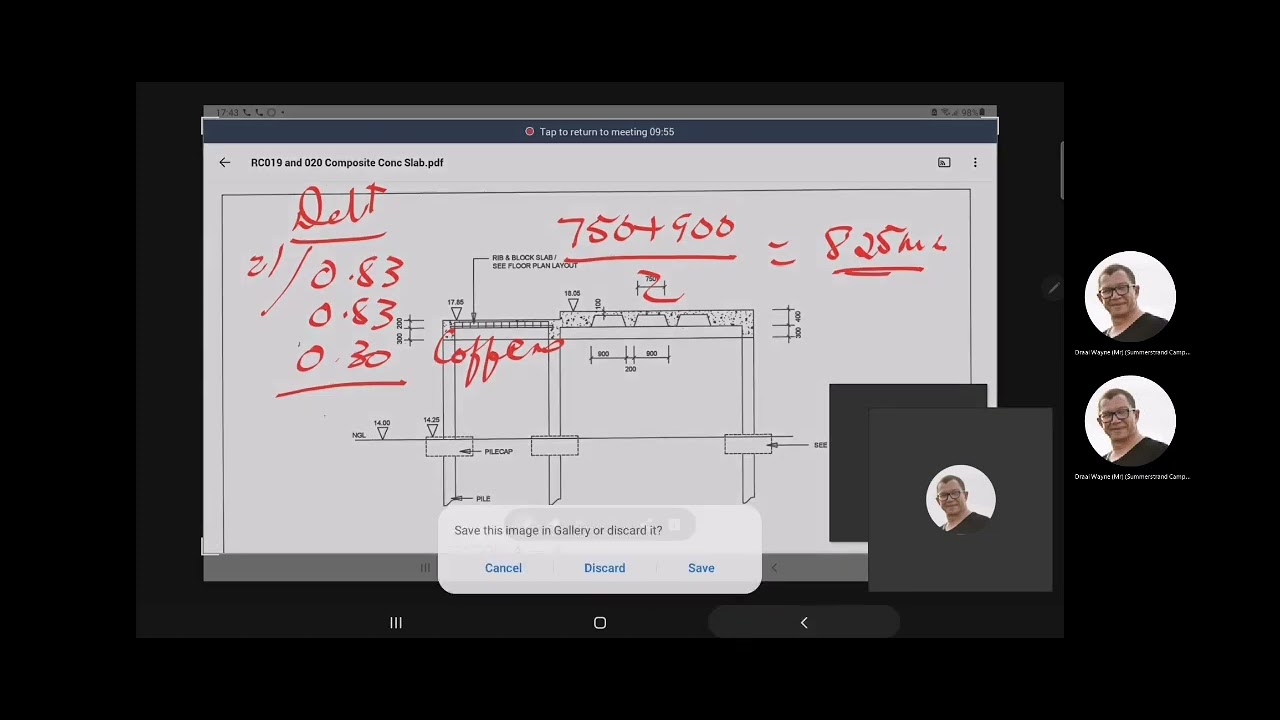 17:43
98%
Tap to return to meeting 09:55
RC019 and 020 Composite Conc Slab.pdf
Ddt
21/ 0.83
0.83
0.30
Coffers
750+900
2
= 825mm
RIB & BLOCK SLAB /
SEE FLOOR PLAN LAYOUT
750
17.85
18.05
100
200
300
400
300
900
900
200
14.00
14.25
NGL
PILECAP
SEE
PILE
Save this image in Gallery or discard it?
Cancel
Discard
Save
Draai Wayne (Mr) (Summerstrand Camp...
Draai Wayne (Mr) (Summerstrand Camp...